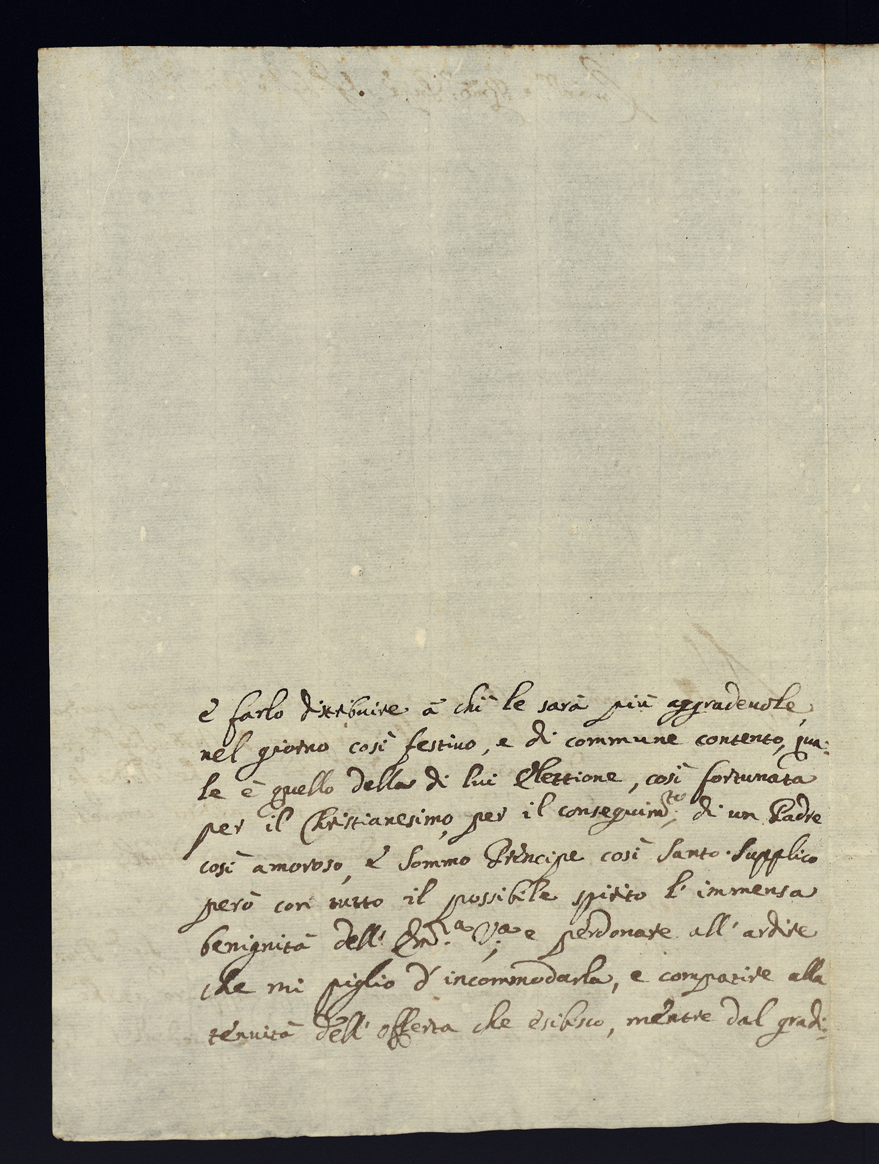 e farlo distribuire à chi le sarà più aggradevole,
nel giorno così festivo, e di commune contento, qua:
le è quello della di lui Elettione, così fortunata
per il Christianesimo, per il conseguim:to di un Padre
così amoroso, e Sommo Principe così Santo. Supplico
però con tutto il possibile spirito l'immensa
benignità dell' Em:a V:a e perdonare all' ardire
che mi piglio d'incommodarla, e compatire alla
tenuità dell' offerta che esibisco, mentre dal gradi: